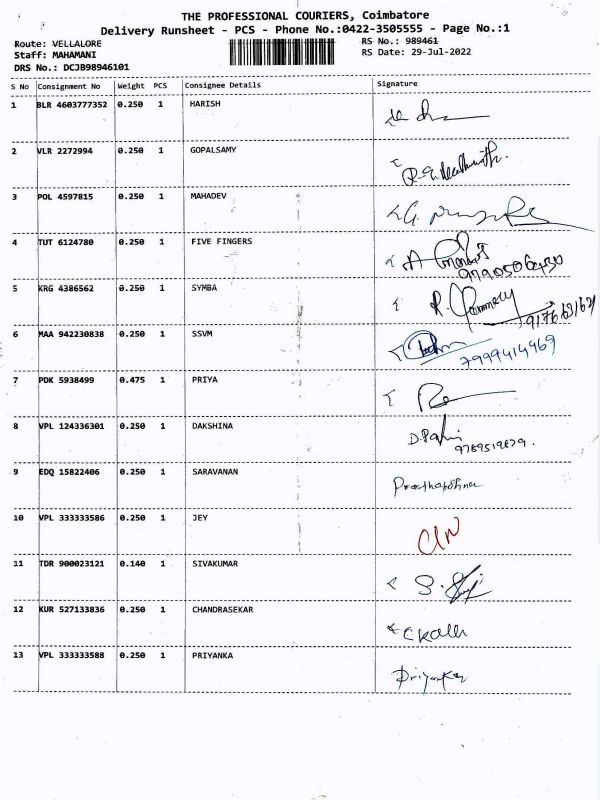 THE PROFESSIONAL COURIERS, Coimbatore
Delivery Runsheet - PCS - Phone No.:0422-3505555 - Page No.:1
Route: VELLALORE RS No.: 989461
Staff: MAHAMANI RS Date: 29-Jul-2022
DRS No.: DCJB98946101
S No Consignment No Weight PCS Consignee Details Signature
1 BLR 4603777352 0.250 1 HARISH
2 VLR 2272994 0.250 1 GOPALSAMY
3 POL 4597815 0.250 1 MAHADEV
4 TUT 6124780 0.250 1 FIVE FINGERS
9790506430
5 KRG 4386562 0.250 1 SYMBA
6 MAA 942230838 0.250 1 SSVM
7999414969
7 PDK 5938499 0.475 1 PRIYA
8 VPL 124336301 0.250 1 DAKSHINA
9 EDQ 15822406 0.250 1 SARAVANAN
10 VPL 333333586 0.250 1 JEY
11 TDR 900023121 0.140 1 SIVAKUMAR
12 KUR 527133836 0.250 1 CHANDRASEKAR
13 VPL 333333588 0.250 1 PRIYANKA
Priyanka